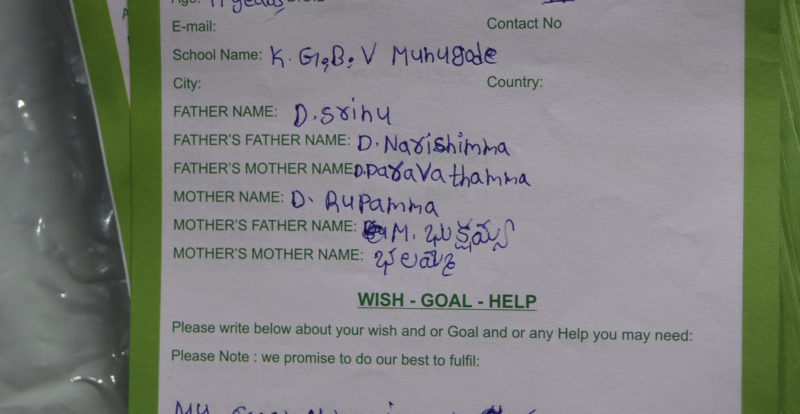 Age: 11 years
E-mail: Contact No
School Name: K. G. B. V Munugode
City: Country:
FATHER NAME: D. Srinu
FATHER'S FATHER NAME: D. Narishimma
FATHER'S MOTHER NAME: D. ParaVathamma
MOTHER NAME: D. Rupamma
MOTHER'S FATHER NAME: M. భుక్షమ్మ
MOTHER'S MOTHER NAME: భలమ్మ
WISH - GOAL - HELP
Please write below about your wish and or Goal and or any Help you may need:
Please Note : we promise to do our best to fulfil:
My